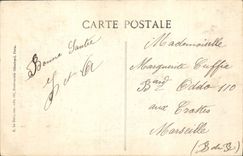 CARTE POSTALE
Bonne Santé
Mademoiselle
Marguerite Cuffia
Bard Oddo 110
aux Crottes
Marseille
(B du R)